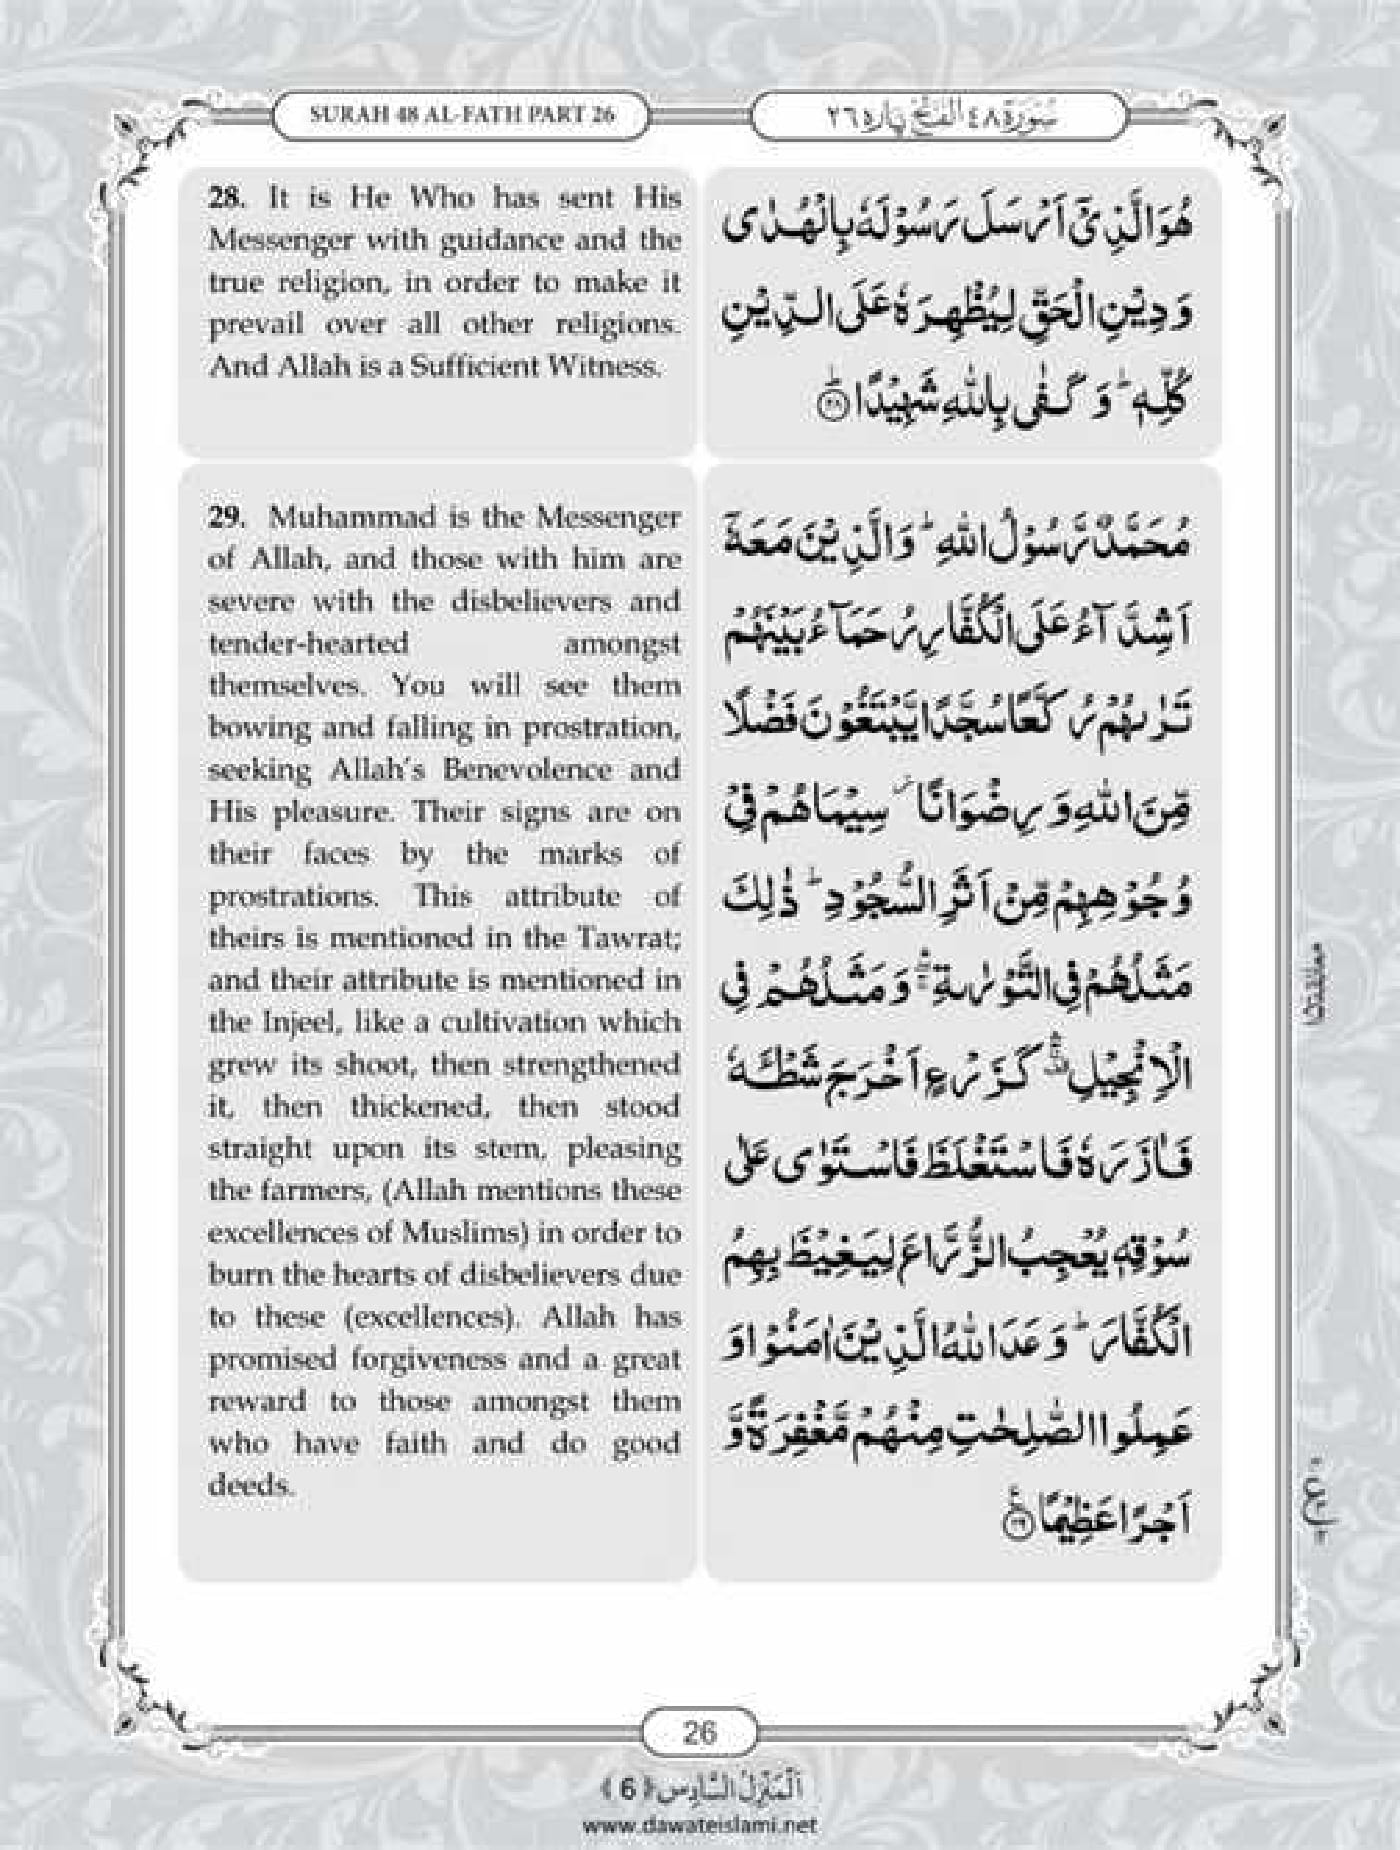 SURAH 48 AL-FATH PART 26
سُوْرَة ٤٨ اَلْفَتْحُ پاره ٢٦
28. It is He Who has sent His
Messenger with guidance and the
true religion, in order to make it
prevail over all other religions.
And Allah is a Sufficient Witness.
هُوَ الَّذِیْۤ اَرْسَلَ رَسُوْلَهٗ بِالْهُدٰی
وَ دِیْنِ الْحَقِّ لِیُظْهِرَهٗ عَلَی الدِّیْنِ
كُلِّهٖ ؕ وَ كَفٰی بِاللّٰهِ شَهِیْدًا ؕ﴿۲۸﴾
29. Muhammad is the Messenger
of Allah, and those with him are
severe with the disbelievers and
tender-hearted amongst
themselves. You will see them
bowing and falling in prostration,
seeking Allah’s Benevolence and
His pleasure. Their signs are on
their faces by the marks of
prostrations. This attribute of
theirs is mentioned in the Tawrat;
and their attribute is mentioned in
the Injeel, like a cultivation which
grew its shoot, then strengthened
it, then thickened, then stood
straight upon its stem, pleasing
the farmers, (Allah mentions these
excellences of Muslims) in order to
burn the hearts of disbelievers due
to these (excellences). Allah has
promised forgiveness and a great
reward to those amongst them
who have faith and do good
deeds.
مُحَمَّدٌ رَّسُوْلُ اللّٰهِ ؕ وَ الَّذِیْنَ مَعَهٗۤ
اَشِدَّآءُ عَلَی الْكُفَّارِ رُحَمَآءُ بَیْنَهُمْ
تَرٰىهُمْ رُكَّعًا سُجَّدًا یَّبْتَغُوْنَ فَضْلًا
مِّنَ اللّٰهِ وَ رِضْوَانًا ؗ سِیْمَاهُمْ فِیْ
وُجُوْهِهِمْ مِّنْ اَثَرِ السُّجُوْدِ ؕ ذٰلِكَ
مَثَلُهُمْ فِی التَّوْرٰىةِ ۛۖۚ وَ مَثَلُهُمْ فِی
الْاِنْجِیْلِ ۛ۫ۚ كَزَرْعٍ اَخْرَجَ شَطْـَٔهٗ
فَاٰزَرَهٗ فَاسْتَغْلَظَ فَاسْتَوٰی عَلٰی
سُوْقِهٖ یُعْجِبُ الزُّرَّاعَ لِیَغِیْظَ بِهِمُ
الْكُفَّارَ ؕ وَعَدَ اللّٰهُ الَّذِیْنَ اٰمَنُوْا وَ
عَمِلُوا الصّٰلِحٰتِ مِنْهُمْ مَّغْفِرَةً وَّ
اَجْرًا عَظِیْمًا ﴿۲۹﴾
26
اَلْمَنْزِلُ السَّادِس ﴿6﴾
www.dawateislami.net